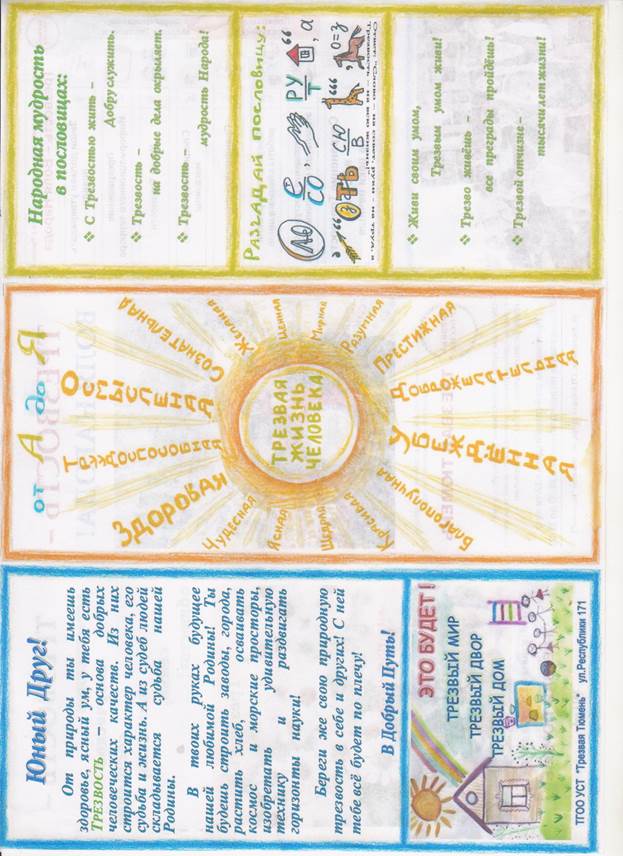 Юный Друг!
От природы ты имеешь
здоровье, ясный ум, у тебя есть
ТРЕЗВОСТЬ – основа добрых
человеческих качеств. Из них
строится характер человека, его
судьба и жизнь. А из судеб людей
складывается судьба нашей
Родины.
В твоих руках будущее
нашей любимой Родины! Ты
будешь строить заводы, города,
растить хлеб, осваивать
космос и морские просторы,
изобретать удивительную
технику и раздвигать
горизонты науки!
Береги же свою природную
трезвость в себе и других! С ней
тебе всё будет по плечу!
В Добрый Путь!
ЭТО БУДЕТ!
ТРЕЗВЫЙ МИР
ТРЕЗВЫЙ ДВОР
ТРЕЗВЫЙ ДОМ
ТГОО УСТ "Трезвая Тюмень" ул.Республики 171
от А до Я
ЗДОРОВАЯ
ОСМЫСЛЕННАЯ
СОЗНАТЕЛЬНАЯ
Желанная
Ценная
Мирная
Разумная
ПРЕСТИЖНАЯ
ДОБРОЖЕЛАТЕЛЬНАЯ
УБЕЖДЁННАЯ
Благополучная
Красивая
Щедрая
Ясная
Чудесная
ТРЕЗВАЯ
ЖИЗНЬ
ЧЕЛОВЕКА
Народная мудрость
в пословицах:
❖ С Трезвостью жить –
Добру служить.
❖ Трезвость –
на добрые дела окрыляет.
❖ Трезвость –
мудрость Народа!
РАЗГАДАЙ ПОСЛОВИЦУ:
❖ Живи своим умом,
Трезвым умом живи!
❖ Трезво живёшь –
все преграды пройдёшь!
❖ Трезвой отчизне –
тысячи лет жизни!